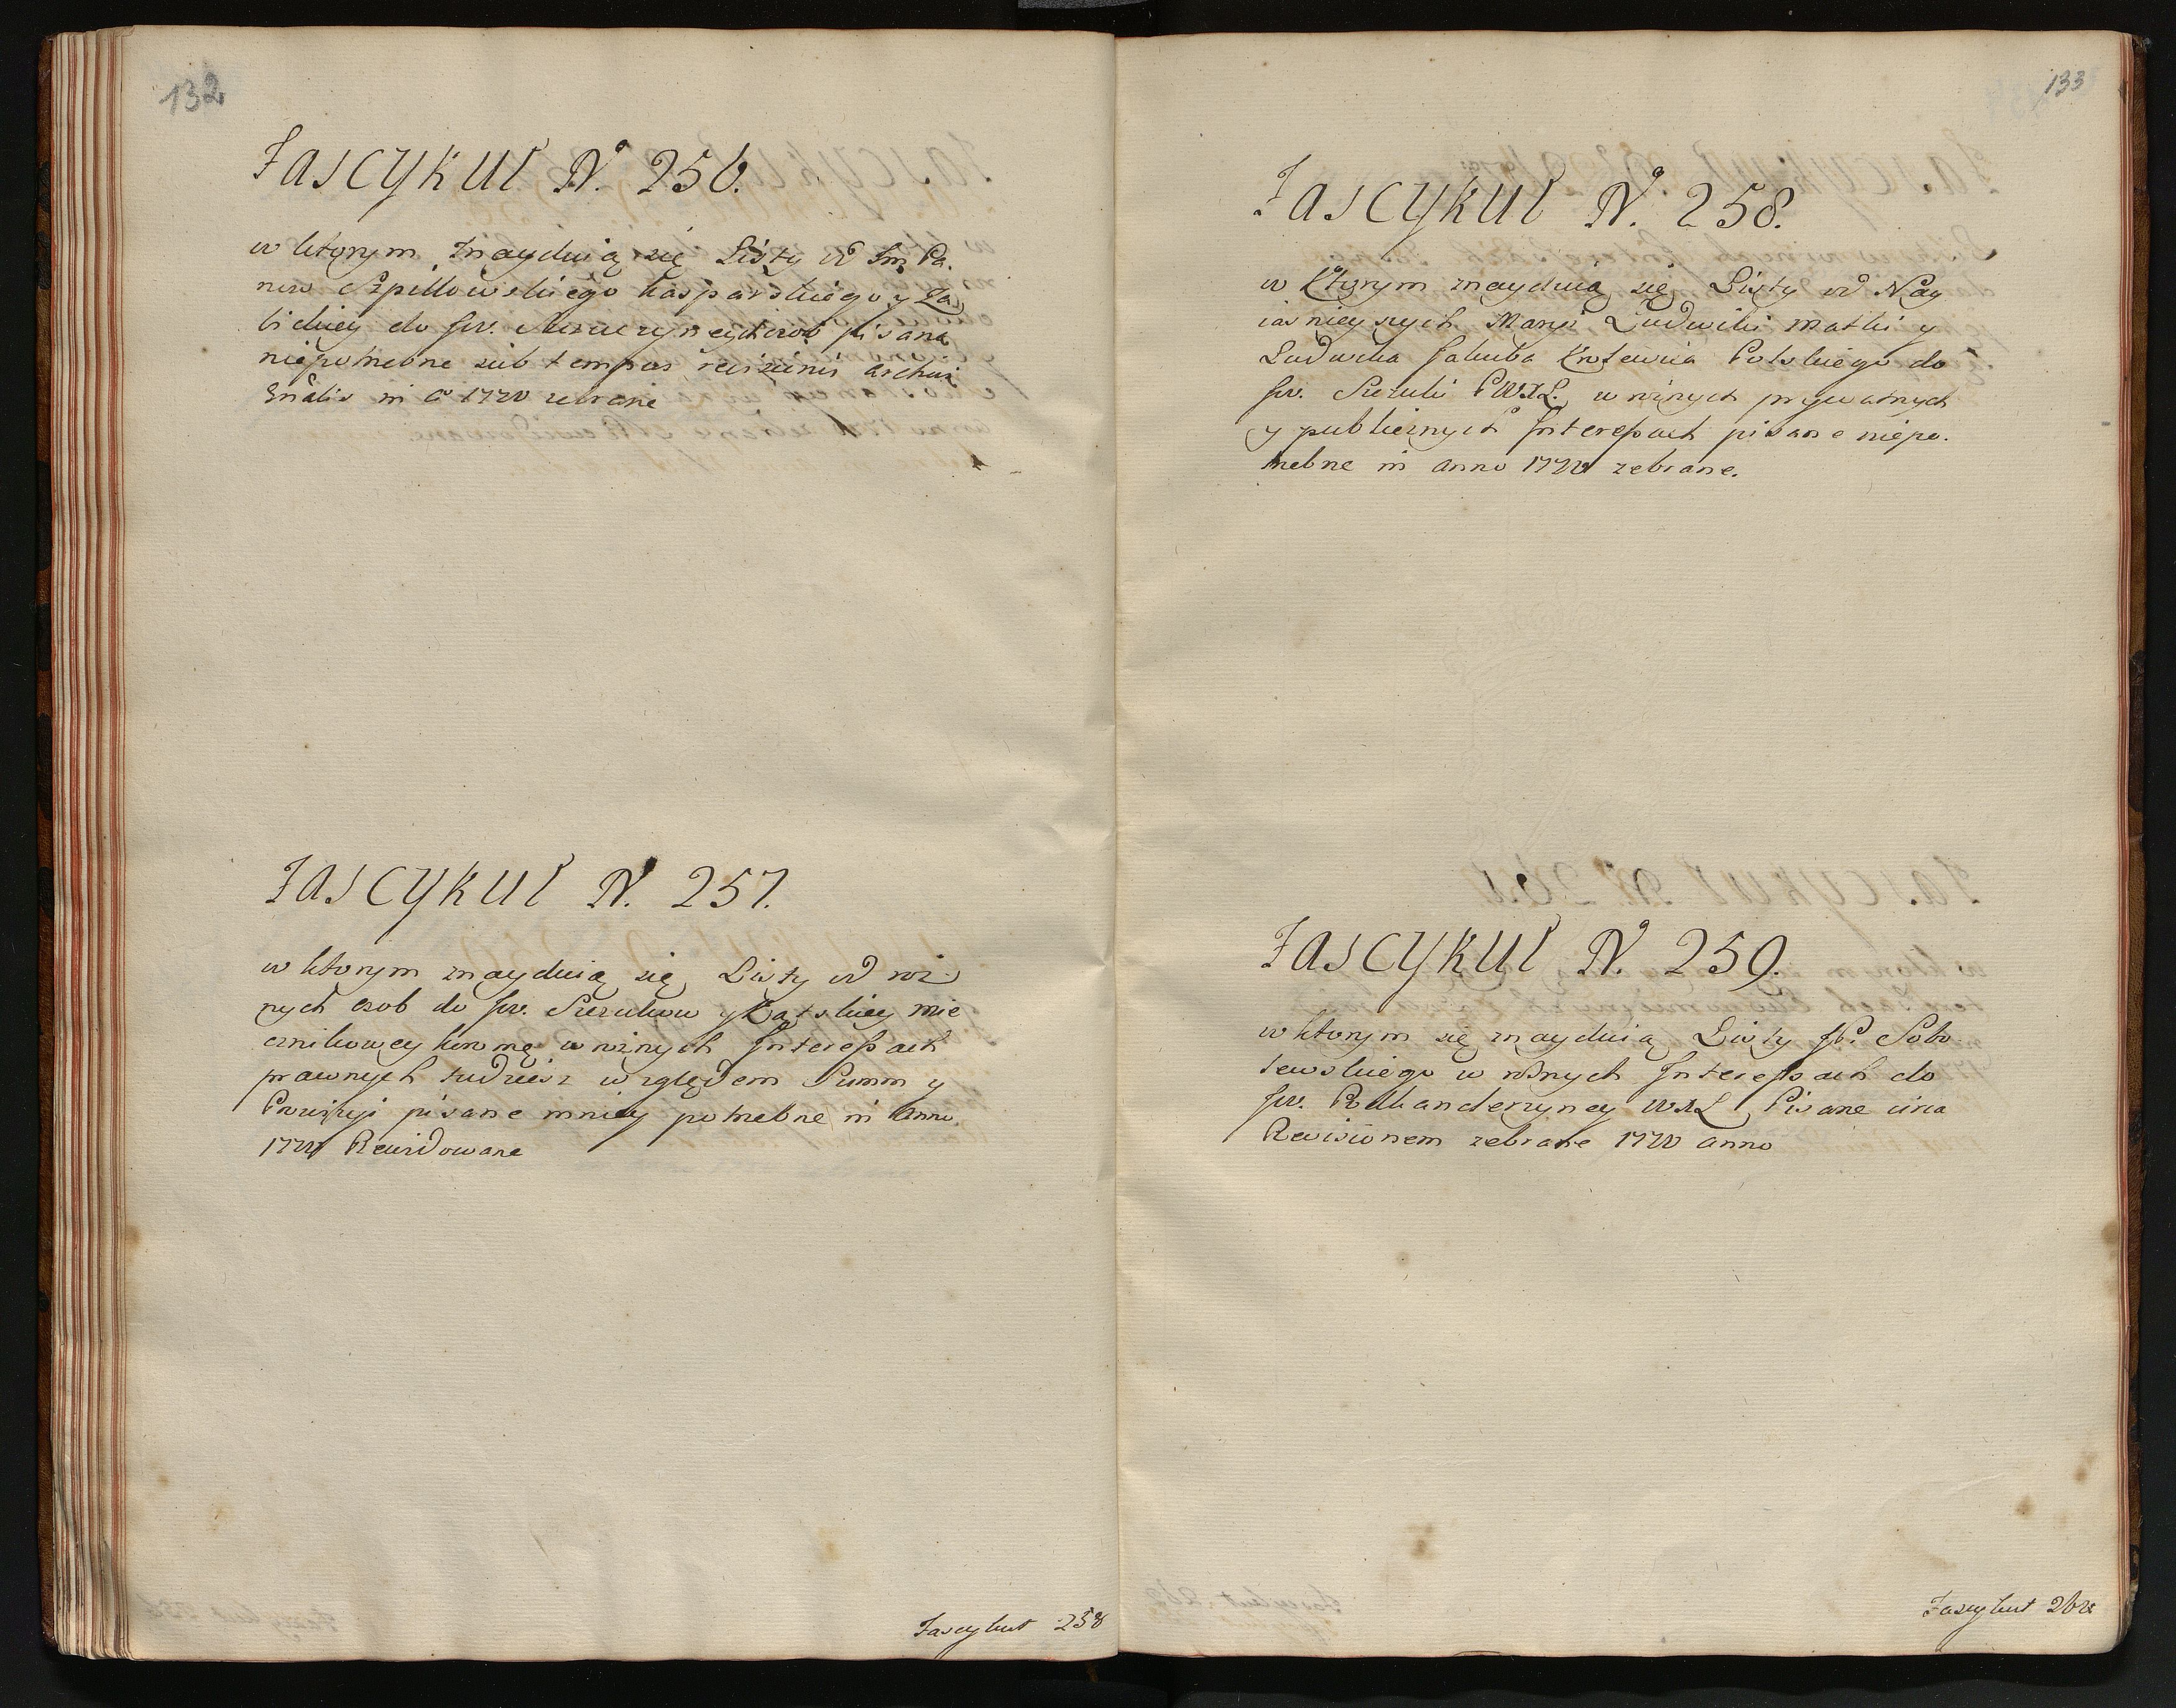 132
Fascykuł N. 256.
w ktorym znayduią się Listy od Im Pa.
now Szpillowskiego Kasparskiego y Za
bickiey do
niepotrzebne sub tempus revisionis Archivi
Gnalis in Ao 1720 zebrane
Fascykuł N. 257.
w ktorym znayduią się Listy od roż
nych osob do Jw. Szczukow y Kątskiey mie
cznikowey koronę w rożnych Interessach
prawnych tudziesz względem Summ y
Prowizyi pisane mniey potrzebne in Anno
1720 Rewidowane
Fascykuł 258
133
Fascykuł N. 258.
w ktorym znayduią się Listy od Nay
iasnieyszych Maryi Ludwiki matki y
Ludwika Jakuba Krolewica Polskiego do
Jw. Szczuki PWXL. w rożnych prywatnych
y publicznych Interessach pisane niepo.
trzebne in anno 1720 zebrane.
Fascykuł N. 259.
w ktorym się znayduią Listy JP. Sobo
lewskiego w rożnych Interessach do
Jw. Pkanclerzyney WXL Pisane circa
Revisionem zebrane 1720 anno
Fascykuł 260